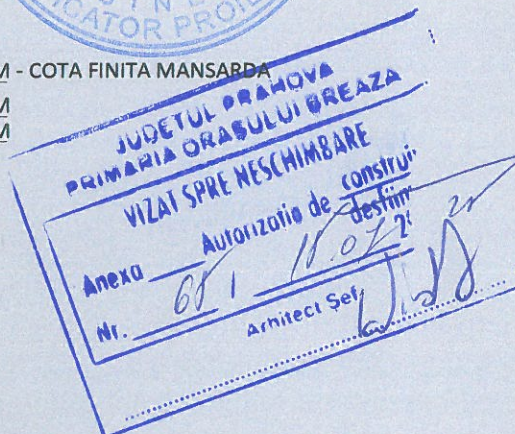 CATOR PROIE
M - COTA FINITA MANSARDA
M
M
JUDETUL PRAHOVA
PRIMARIA ORASULUI BREAZA
VIZAT SPRE NESCHIMBARE
Anexa Autorizatia de construi
desfiin
Nr. 68 / 18.07
Arhitect Şef,